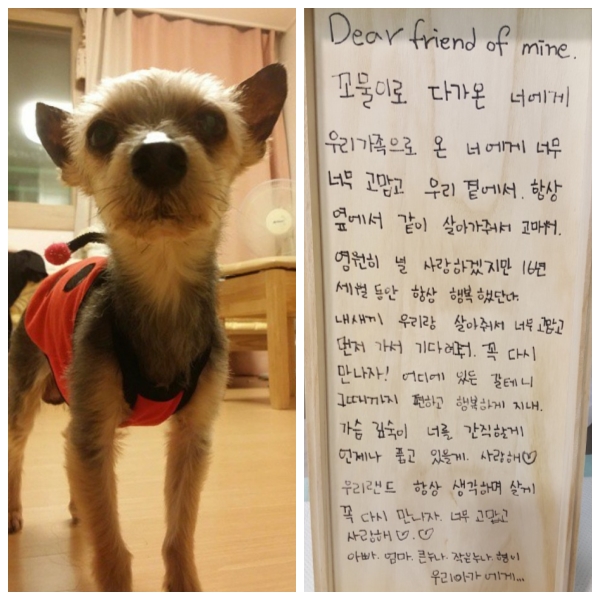 Dear friend of mine.
꼬물이로 다가온 너에게
우리가족으로 온 너에게 너무
너무 고맙고 우리 곁에서. 항상
옆에서 같이 살아가줘서 고마워.
영원히 널 사랑하겠지만 16년
세월 동안 항상 행복했단다.
내새끼 우리랑 살아줘서 너무 고맙고
먼저 가서 기다려줘. 꼭 다시
만나자! 어디에 있든 갈테니
그때까지 편하고 행복하게 지내.
가슴 깊숙이 너를 간직할게
언제나 품고 있을게. 사랑해♡
우리랜드 항상 생각하며 살게
꼭 다시 만나자. 너무 고맙고
사랑해♡.♡
아빠. 엄마. 큰누나. 작은누나. 형이
우리아가에게...